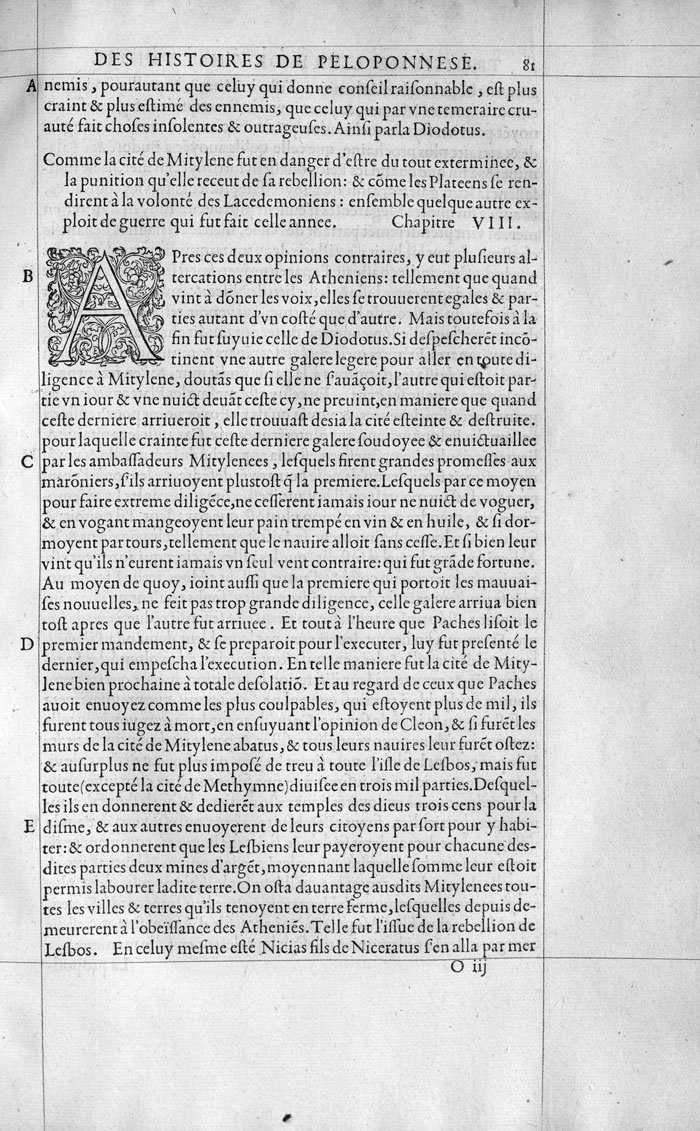 DES HISTOIRES DE PELOPONNESE. 81
A nemis, pourautant que celuy qui donne conſeil raiſonnable, eſt plus
craint & plus eſtimé des ennemis, que celuy qui par vne temeraire cru-
auté fait choſes inſolentes & outrageuſes. Ainſi parla Diodotus.
Comme la cité de Mitylene fut en danger d'eſtre du tout exterminee, &
la punition qu'elle receut de ſa rebellion: & cõme les Plateens ſe ren-
dirent à la volonté des Lacedemoniens: enſemble quelque autre ex-
ploit de guerre qui fut fait celle annee. Chapitre VIII.
APres ces deux opinions contraires, y eut pluſieurs al-
B tercations entre les Atheniens: tellement que quand
vint à dõner les voix, elles ſe trouuerent egales & par-
ties autant d'vn coſté que d'autre. Mais toutefois à la
fin fut ſuyuie celle de Diodotus. Si deſpeſcherẽt incõ-
tinent vne autre galere legere pour aller en toute di-
ligence à Mitylene, doutãs que ſi elle ne s'auãçoit, l'autre qui eſtoit par-
tie vn iour & vne nuict deuãt ceſte cy, ne preuint, en maniere que quand
ceſte derniere arriueroit, elle trouuaſt deſia la cité eſteinte & deſtruite.
pour laquelle crainte fut ceſte derniere galere ſoudoyee & enuictuaillee
C par les ambaſſadeurs Mitylenees, leſquels firent grandes promeſſes aux
marõniers, s'ils arriuoyent pluſtoſt q̃ la premiere. Leſquels par ce moyen
pour faire extreme diligẽce, ne ceſſerent iamais iour ne nuict de voguer,
& en vogant mangeoyent leur pain trempé en vin & en huile, & ſi dor-
moyent par tours, tellement que le nauire alloit ſans ceſſe. Et ſi bien leur
vint qu'ils n'eurent iamais vn ſeul vent contraire: qui fut grãde fortune.
Au moyen de quoy, ioint auſſi que la premiere qui portoit les mauuai-
ſes nouuelles, ne feit pas trop grande diligence, celle galere arriua bien
toſt apres que l'autre fut arriuee. Et tout à l'heure que Paches liſoit le
D premier mandement, & ſe preparoit pour l'executer, luy fut preſenté le
dernier, qui empeſcha l'execution. En telle maniere fut la cité de Mity-
lene bien prochaine à totale deſolatiõ. Et au regard de ceux que Paches
auoit enuoyez comme les plus coulpables, qui eſtoyent plus de mil, ils
furent tous iugez à mort, en enſuyuant l'opinion de Cleon, & ſi furẽt les
murs de la cité de Mitylene abatus, & tous leurs nauires leur furẽt oſtez:
& auſurplus ne fut plus impoſé de treu à toute l'iſle de Lesbos, mais fut
toute (excepté la cité de Methymne) diuiſee en trois mil parties. Deſquel-
les ils en donnerent & dedierẽt aux temples des dieus trois cens pour la
E diſme, & aux autres enuoyerent de leurs citoyens par ſort pour y habi-
ter: & ordonnerent que les Leſbiens leur payeroyent pour chacune deſ-
dites parties deux mines d'argẽt, moyennant laquelle ſomme leur eſtoit
permis labourer ladite terre. On oſta dauantage auſdits Mitylenees tou-
tes les villes & terres qu'ils tenoyent en terre ferme, leſquelles depuis de-
meurerent à l'obeïſſance des Atheniẽs. Telle fut l'iſſue de la rebellion de
Leſbos. En celuy meſme eſté Nicias fils de Niceratus s'en alla par mer
O iij